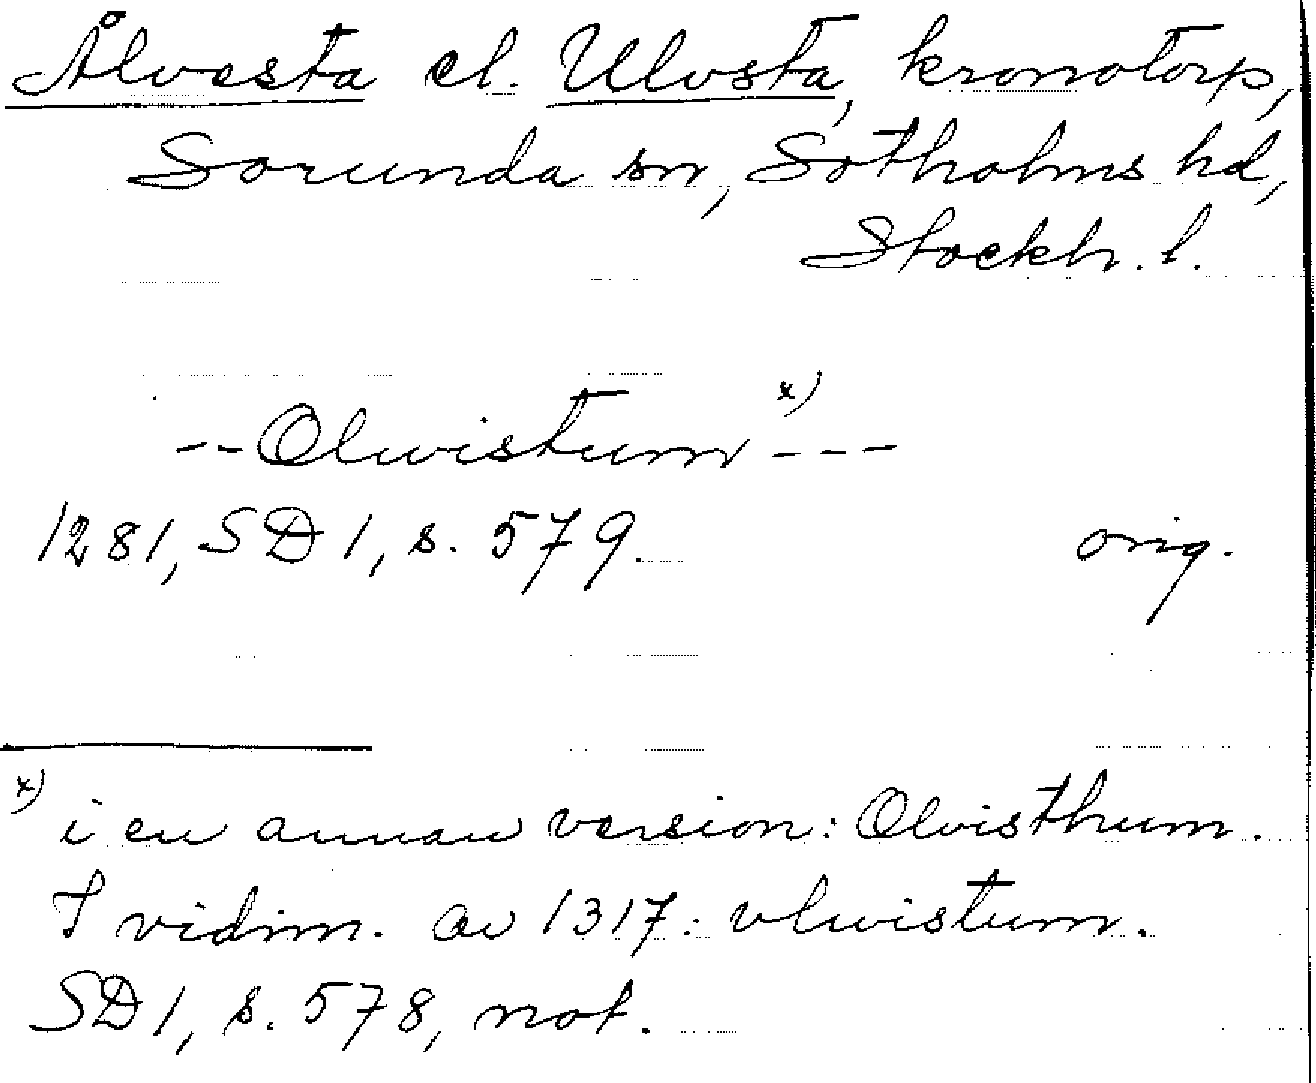 Ålvesta el. Ulvsta, kronotorp,
Sorunda sn, Sotholms hd,
Stockh. l.
--Olwistum x) ---
1281, SD 1, s. 579. orig.
x) i en annan version: Olvisthum.
I vidim. av 1317: vlwistum.
SD 1, s. 578, not.